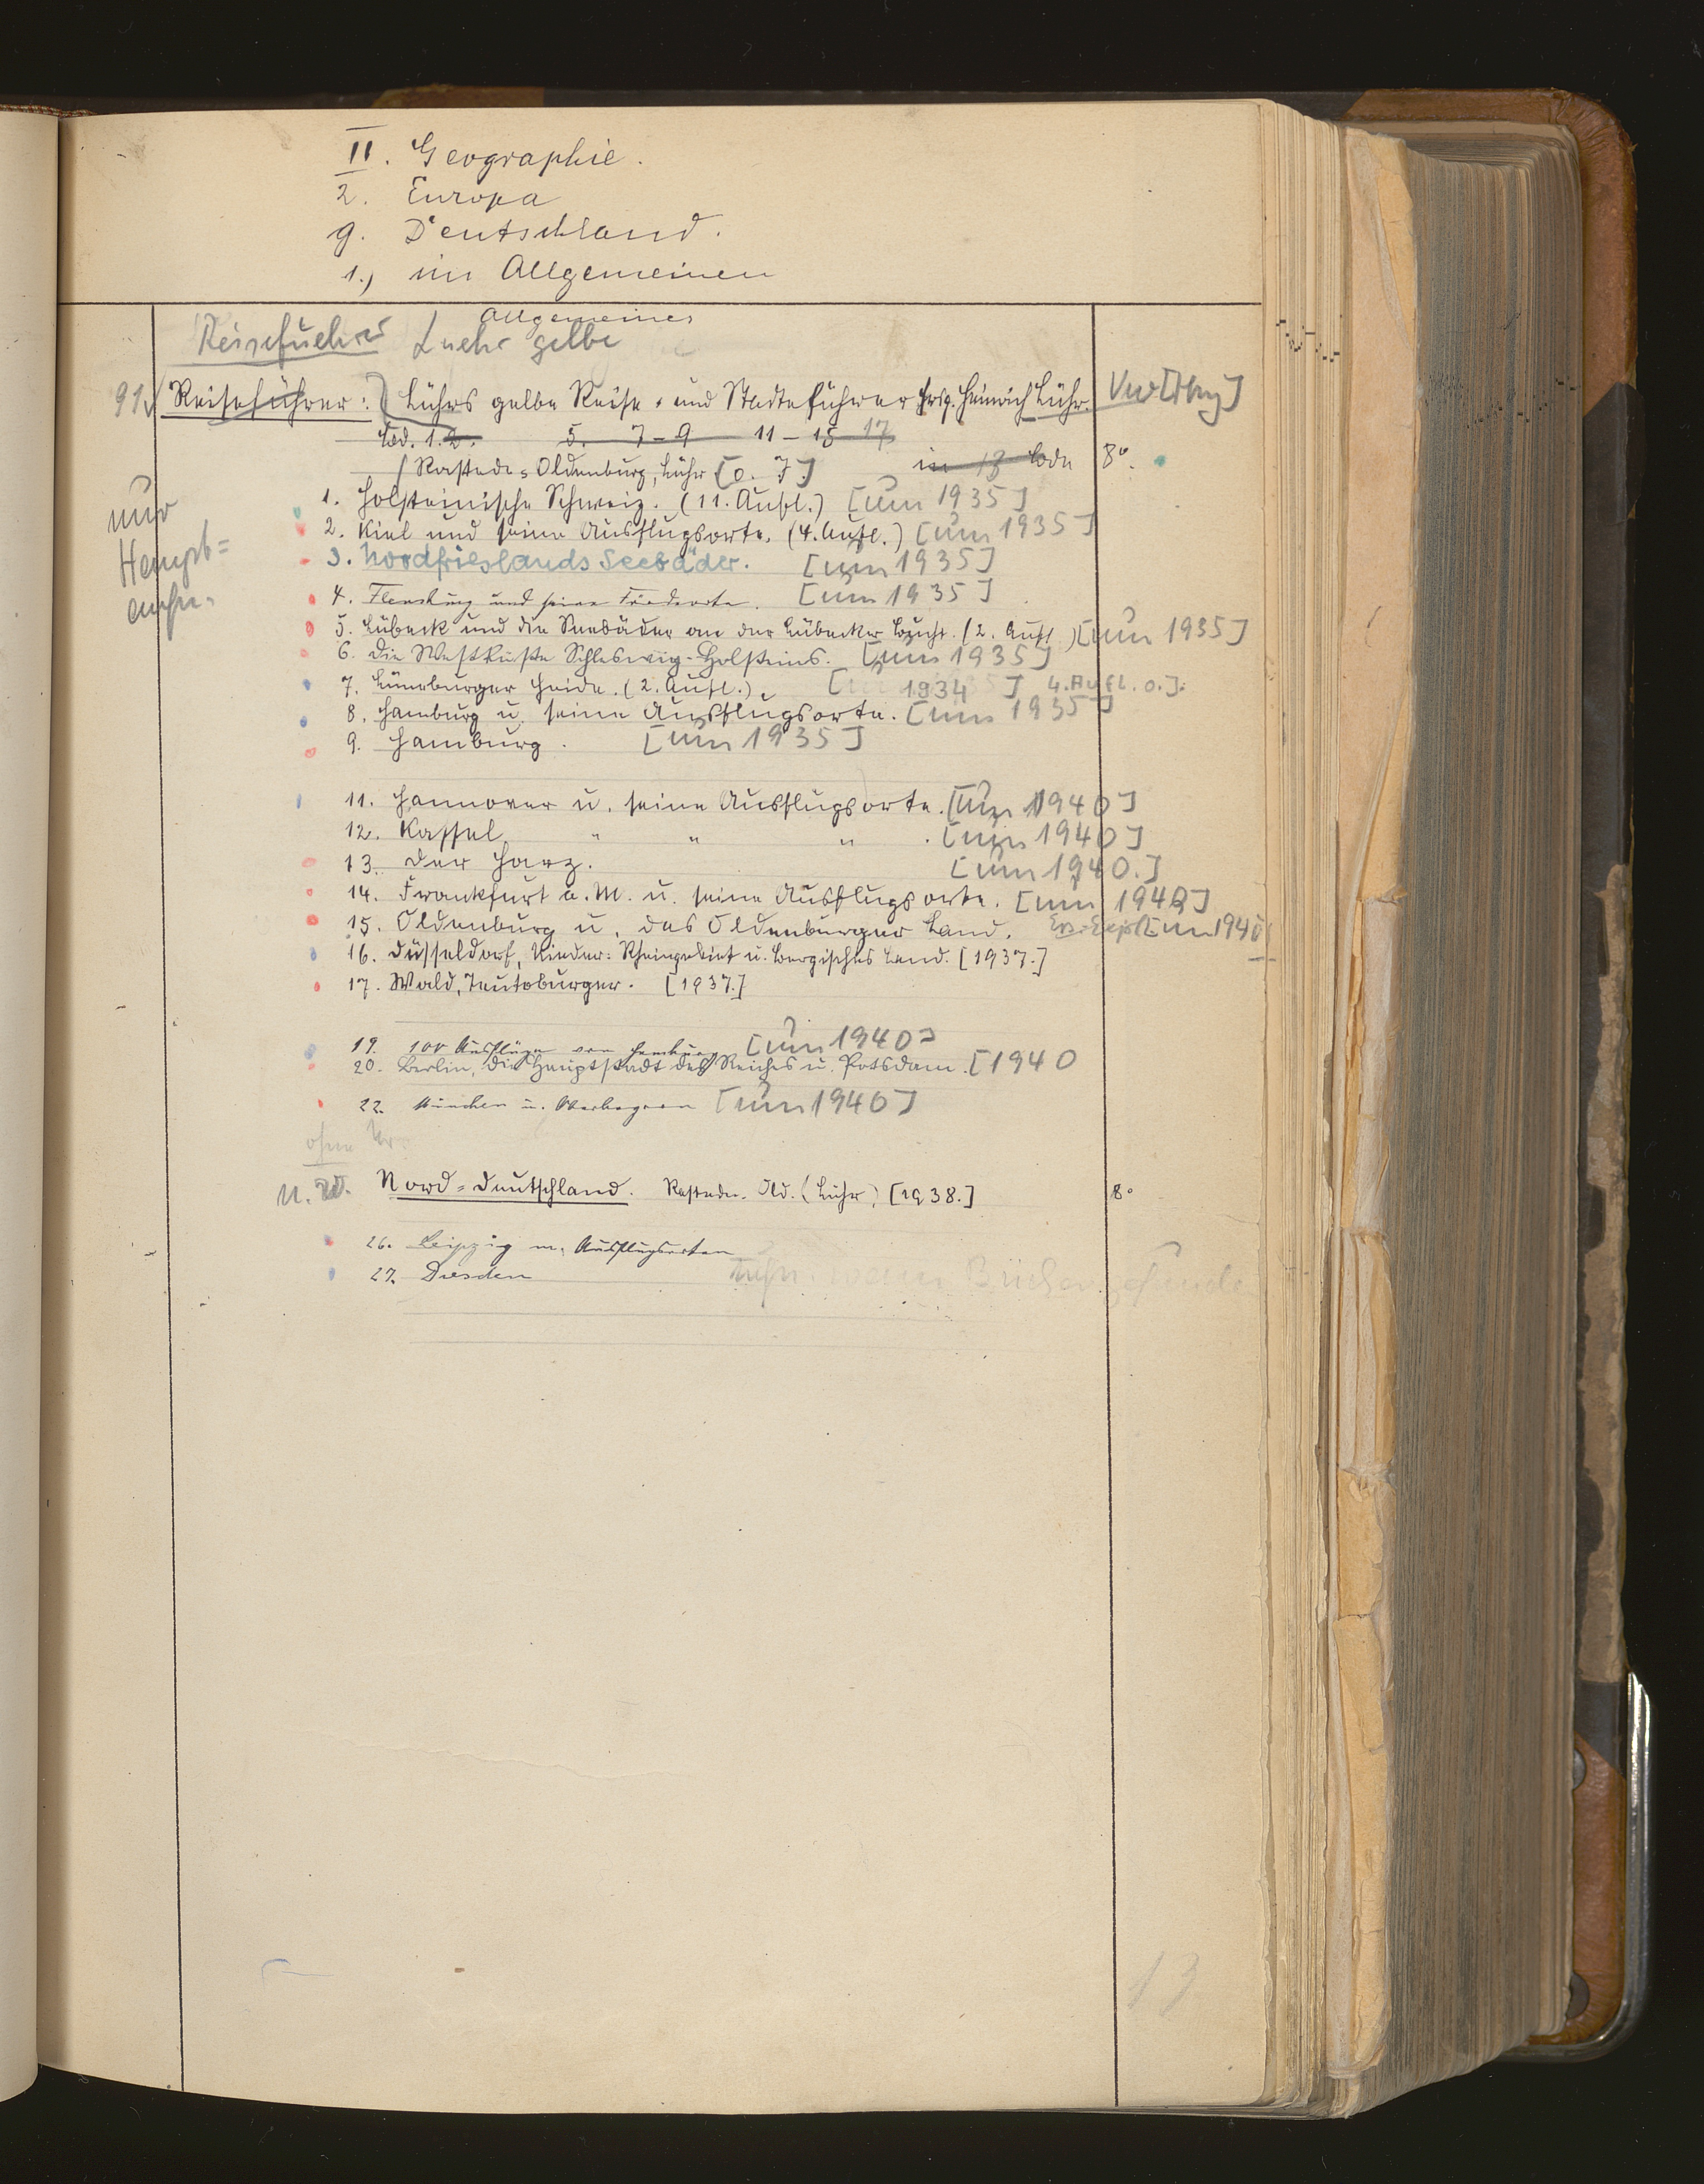 II. Geographie.
2. Europa
g. Deutschland.
1.) im Allgemeinen
Allgemeines
Reisefuehrer Luehr gelbe
91. Reiseführer: Lührs gelbe Reise- und Städteführer hrsg. Heinrich Lühr.
Bd. 1. 2. 5. 7-9 11-15 17
(Rastede-Oldenburg, Lühr [o. J.] in 13 Bde 8°.
nur
Haupt=
aufn.
1. Holsteinische Schweiz. (11. Aufl.) [um 1935]
2. Kiel und seine Ausflugsorte. (4. Aufl.) [um 1935]
3. Nordfrieslands Seebäder. [um 1935]
4. Flensburg und seine Fördeorte. [um 1935]
5. Lübeck und die Seebäder an der Lübecker Bucht. (2. Aufl.) [um 1935]
6. Die Westküste Schleswig-Holsteins. [um 1935]
7. Lüneburger Heide. (2. Aufl.). [1934] 4. Aufl. o. J.
8. Hamburg u. seine Ausflugsorte. [um 1935]
9. Hamburg. [um 1935]
11. Hannover u. seine Ausflugsorte. [um 1940]
12. Kassel " " " . [um 1940]
13. Der Harz. [um 1940.]
14. Frankfurt a. M. u. seine Ausflugsorte. [um 1940]
15. Oldenburg u. das Oldenburger Land. [um 1940]
16. Düsseldorf, Nieder-Rheingebiet u. Bergisches Land. [1937.]
17. Wald, Teutoburger. [1937.]
19. 100 Ausflüge von Hamburg [um 1940]
20. Berlin, die Hauptstadt des Reiches u. Potsdam. [1940
22. München u. Oberbayern [um 1940]
ohne Nr.
Nord-Deutschland. Rastede. Old. (Lühr). [1938.] 8°
26. Leipzig m. Ausflugsorten
27. Dresden
13